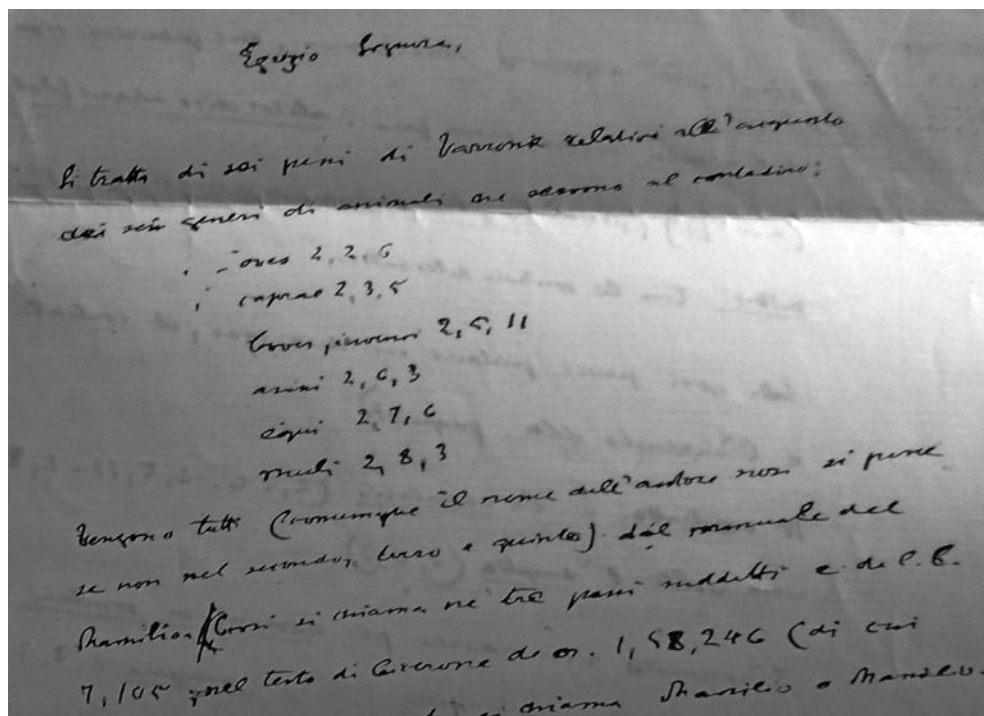 Egregio Signore,
Si tratta di sei passi di Varrone relativi all'acquisto
dei sei generi di animali che servono al contadino:
oves 2, 2, 6
caprae 2, 3, 5
boves, iuvenci 2, 5, 11
asini 2, 6, 3
equi 2, 7, 6
muli 2, 8, 3
Vengono tutti (comunque il nome dell'autore non si pone
se non nel secondo, terzo e quinto) dal manuale del
Manilio. (Così si chiama ne' tre passi suddetti e de l. l.
7, 105; nel testo di Cicerone de or. 1, 58, 246 (di cui
si chiama Manilio o Manlio.